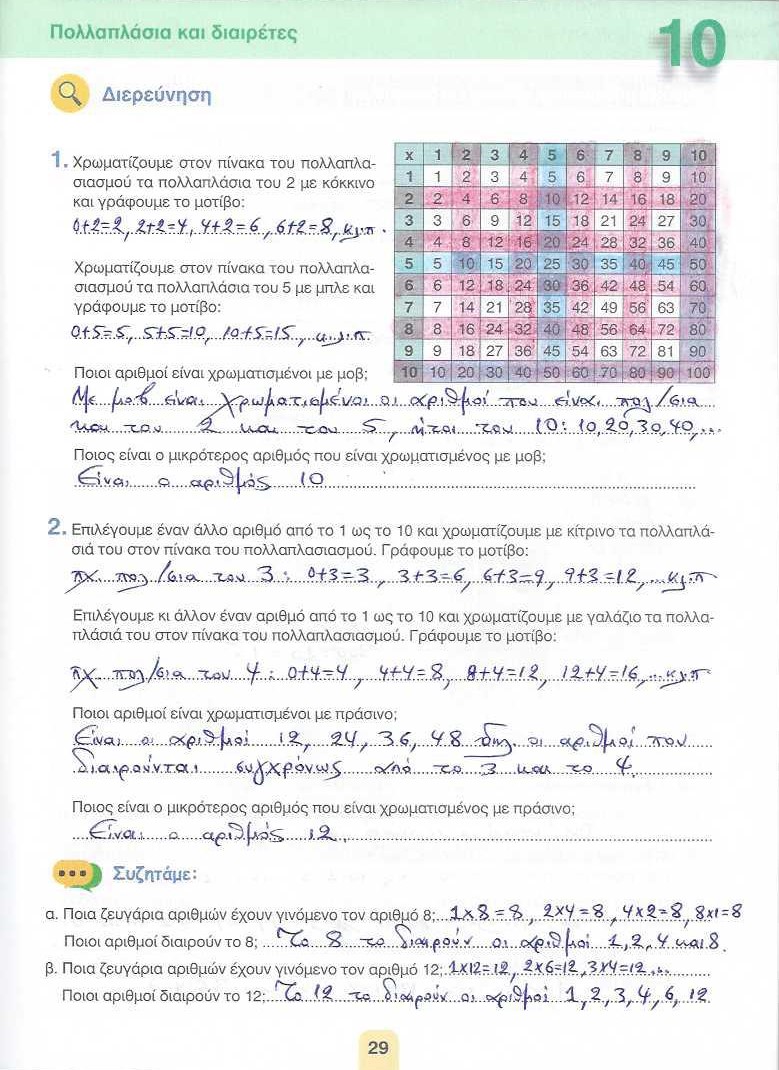 Πολλαπλάσια και διαιρέτες
10
Διερεύνηση
1. Χρωματίζουμε στον πίνακα του πολλαπλα-
σιασμού τα πολλαπλάσια του 2 με κόκκινο
και γράφουμε το μοτίβο:
0+2=2, 2+2=4, 4+2=6, 6+2=8, κ.λ.π.
Χρωματίζουμε στον πίνακα του πολλαπλα-
σιασμού τα πολλαπλάσια του 5 με μπλε και
γράφουμε το μοτίβο:
0+5=5, 5+5=10, 10+5=15, κ.λ.π.
Ποιοι αριθμοί είναι χρωματισμένοι με μοβ;
x 1 2 3 4 5 6 7 8 9 10
1 1 2 3 4 5 6 7 8 9 10
2 2 4 6 8 10 12 14 16 18 20
3 3 6 9 12 15 18 21 24 27 30
4 4 8 12 16 20 24 28 32 36 40
5 5 10 15 20 25 30 35 40 45 50
6 6 12 18 24 30 36 42 48 54 60
7 7 14 21 28 35 42 49 56 63 70
8 8 16 24 32 40 48 56 64 72 80
9 9 18 27 36 45 54 63 72 81 90
10 10 20 30 40 50 60 70 80 90 100
Με μοβ είναι χρωματισμένοι οι αριθμοί που είναι πολ/σια
και του 2 και του 5, ήτοι του 10: 10, 20, 30, 40, ...
Ποιος είναι ο μικρότερος αριθμός που είναι χρωματισμένος με μοβ;
Είναι ο αριθμός 10
2. Επιλέγουμε έναν άλλο αριθμό από το 1 ως το 10 και χρωματίζουμε με κίτρινο τα πολλαπλά-
σιά του στον πίνακα του πολλαπλασιασμού. Γράφουμε το μοτίβο:
πχ. πολ/σια του 3: 0+3=3, 3+3=6, 6+3=9, 9+3=12, ...κ.λ.π
Επιλέγουμε κι άλλον έναν αριθμό από το 1 ως το 10 και χρωματίζουμε με γαλάζιο τα πολλα-
πλάσιά του στον πίνακα του πολλαπλασιασμού. Γράφουμε το μοτίβο:
πχ πολ/σια του 4: 0+4=4, 4+4=8, 8+4=12, 12+4=16, ...κ.λ.π
Ποιοι αριθμοί είναι χρωματισμένοι με πράσινο;
Είναι οι αριθμοί 12, 24, 36, 48 δηλ. οι αριθμοί που
διαιρούνται συγχρόνως από το 3 και το 4.
Ποιος είναι ο μικρότερος αριθμός που είναι χρωματισμένος με πράσινο;
Είναι ο αριθμός 12.
Συζητάμε:
α. Ποια ζευγάρια αριθμών έχουν γινόμενο τον αριθμό 8; 1x8=8, 2x4=8, 4x2=8, 8x1=8
Ποιοι αριθμοί διαιρούν το 8; Το 8 το διαιρούν οι αριθμοί 1, 2, 4 και 8.
β. Ποια ζευγάρια αριθμών έχουν γινόμενο τον αριθμό 12; 1x12=12, 2x6=12, 3x4=12...
Ποιοι αριθμοί διαιρούν το 12; Το 12 το διαιρούν οι αριθμοί 1, 2, 3, 4, 6, 12.
29